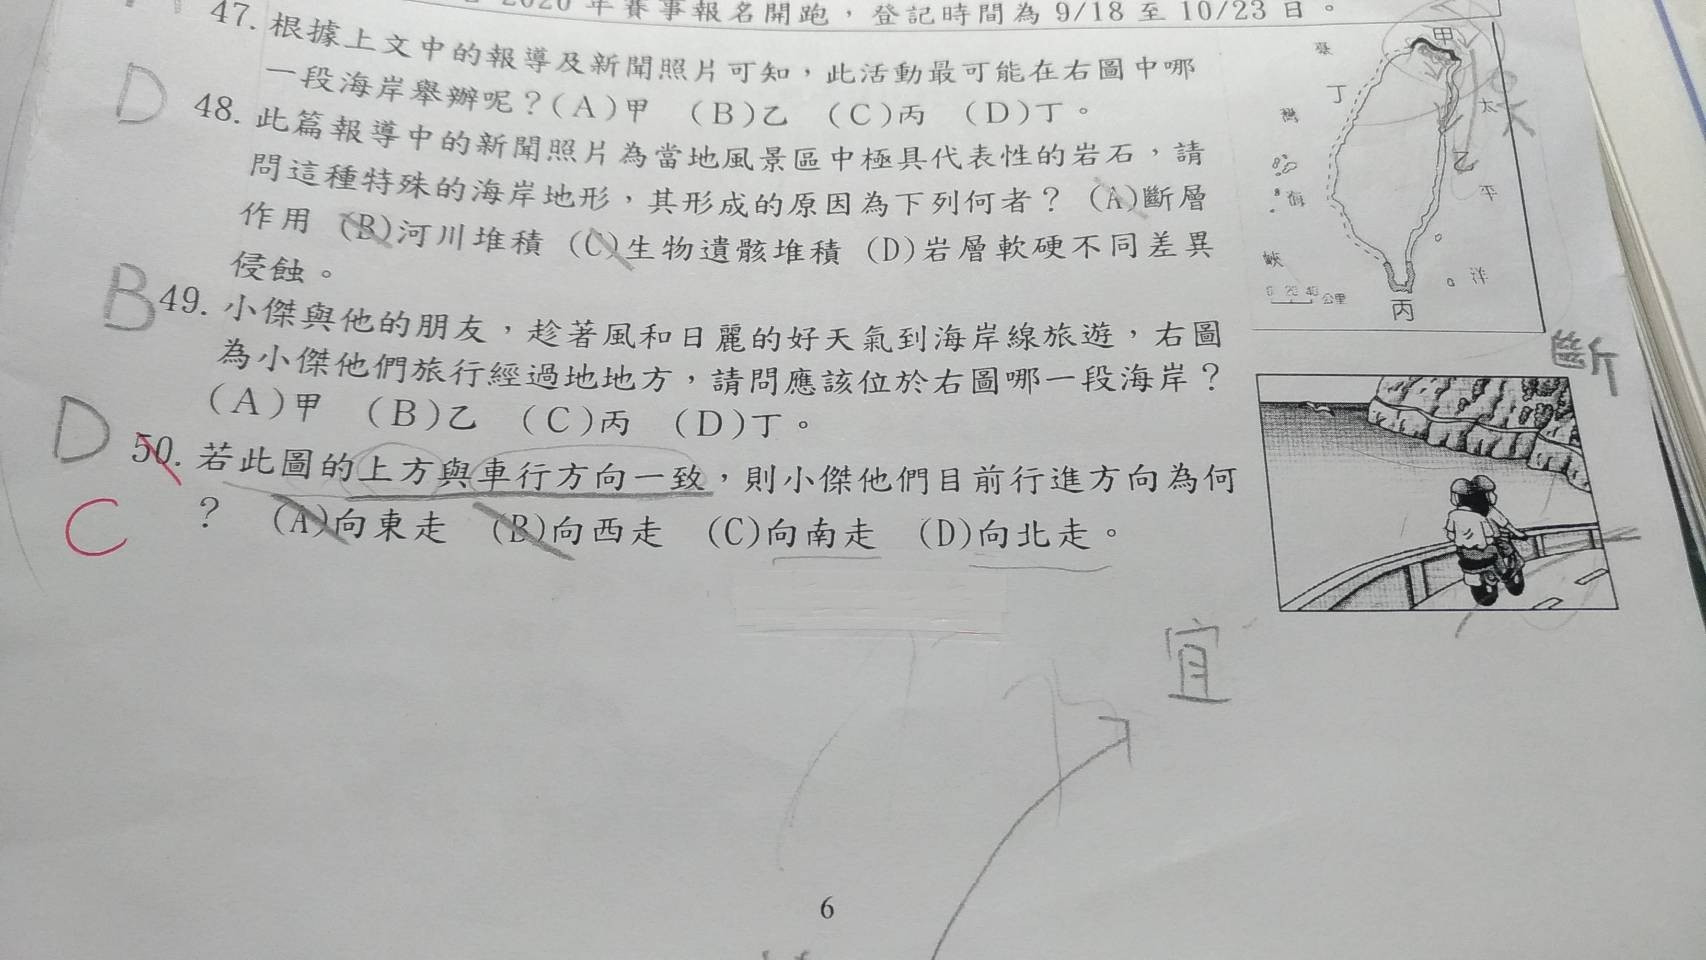 2020 年賽事報名開跑，登記時間為 9/18 至 10/23 日。
47. 根據上文中的報導及新聞照片可知，此活動最可能在右圖中哪
一段海岸舉辦呢？(A)甲 (B)乙 (C)丙 (D)丁。
D 48. 此篇報導中的新聞照片為當地風景區中極具代表性的岩石，請
問這種特殊的海岸地形，其形成的原因為下列何者？ (A)斷層
作用 (B)河川堆積 (C)生物遺骸堆積 (D)岩層軟硬不同差異
侵蝕。
B 49. 小傑與他的朋友，趁著風和日麗的好天氣到海岸線旅遊，右圖
為小傑他們旅行經過地地方，請問應該位於右圖哪一段海岸？
(A)甲 (B)乙 (C)丙 (D)丁。
D 50. 若此圖的上方與車行方向一致，則小傑他們目前行進方向為何
C ？ (A)向東走 (B)向西走 (C)向南走 (D)向北走。
甲
臺
丁
灣
太
乙
海
平
峽
洋
0 20 40 公里
丙
斷
宜
6